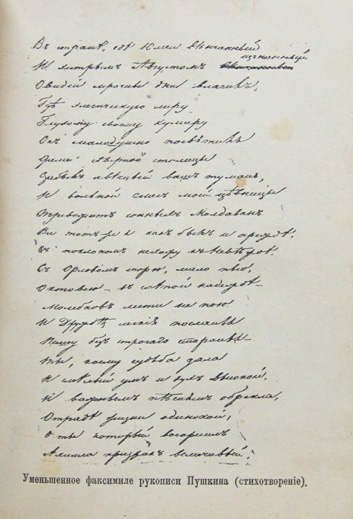 Въ странѣ, гдѣ Юліей вѣнчанный
И хитрымъ Августомъ изгнанный
Овидій мрачны дни влачилъ,
Гдѣ элегическую лиру
Глухому своему кумиру
Онъ малодушно посвятилъ
Далече сѣверной столицы
Забылъ я вѣчный вашъ туманъ,
И вольный гласъ моей цѣвницы
Тревожитъ сонныхъ Молдаванъ
Все тотъ же я какъ былъ и прежде,
Съ поклономъ не хожу къ невѣждѣ,
Съ Орловымъ спорю, мало пью,
Октавію - въ слѣпой надеждѣ -
Молебновъ лести не пою
И Дружбѣ легкія посланья
Пишу безъ строгаго старанья
Ты, коему судьба дала
И смѣлый умъ и духъ высокой,
И важнымъ пѣснямъ обрекла,
Отрадѣ жизни одинокой;
О ты который воскресилъ
Ахилла призракъ величавый,
Уменьшенное факсимиле рукописи Пушкина (стихотвореніе).